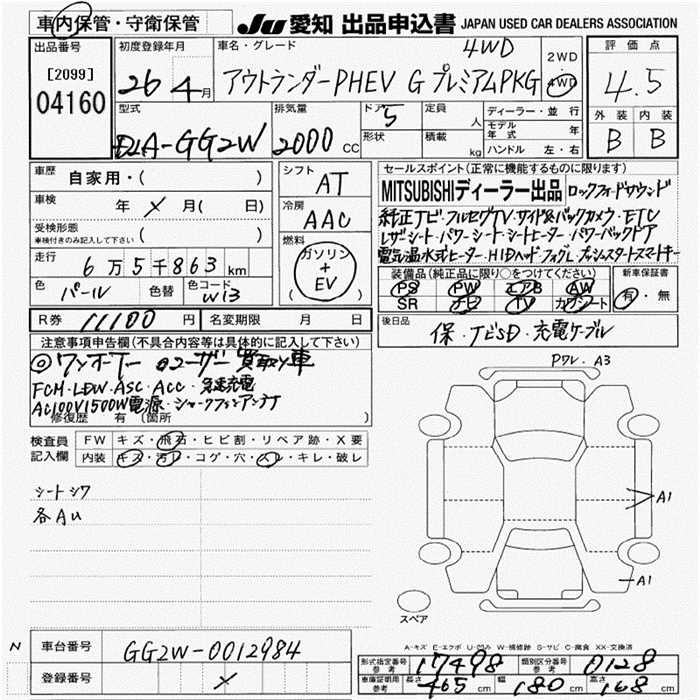 車内保管・守衛保管
JU 愛知 出品申込書 JAPAN USED CAR DEALERS ASSOCIATION
出品番号
[2099]
04160
初度登録年月
26年4月
車名・グレード
4WD
アウトランダーPHEV G プレミアムPKG
2WD
4WD
評価点
4.5
型式
DLA-GG2W
排気量
2000 CC
ドア
5
形状
定員 人
積載 kg
ディーラー・並行
モデル年式 年
ハンドル 左・右
外装 内装
B B
車歴
自家用・( )
車検
年 × 月( 日)
受検形態
車検付きのみ記入して下さい ( )
走行
6万5千863km
色
パール
色替
色コード
W13
シフト
AT
冷房
AAC
燃料
ガソリン
+
EV
( )
セールスポイント(正常に機能するものに限ります)
MITSUBISHIディーラー出品 ロックフォードサウンド
純正ナビ・フルセグTV・サイド&バックカメラ・ETC
レザーシート・パワーシート・シートヒーター・パワーバックドア
電気温水式ヒーター・HIDヘッド・フォグL・プッシュスタートスマートキー
装備品(純正品に限り○をつけてください)
PS PW エアB AW
SR ナビ TV カワシート
新車保証書
有・無
R券 11100 円
名変期限 月 日
後日品
保・ナビSD・充電ケーブル
注意事項申告欄(不具合内容等は具体的に記入して下さい)
◎ワンオーナー ◎ユーザー買取り車
FCM・LDW・ASC・ACC・急速充電
AC100V1500W電源・シャークフィンアンテナ
修復歴 有 (箇所 )
検査員記入欄
FW キズ・飛石・ヒビ割・リペア跡・X要
内装 キズ・汚レ・コゲ・穴・スレ・キレ・破レ
シートシワ
各AU
PクレA3
A1
A1
スペア
N
車台番号
GG2W-0012984
登録番号
×
A-キズ E-エクボ U-凹み W-補修跡 S-サビ C-腐食 XX-交換済
形式指定番号 参考 17498
類別区分番号 参考 0128
車庫証明用 参考 長さ 465 cm 幅 180 cm 高さ 168 cm